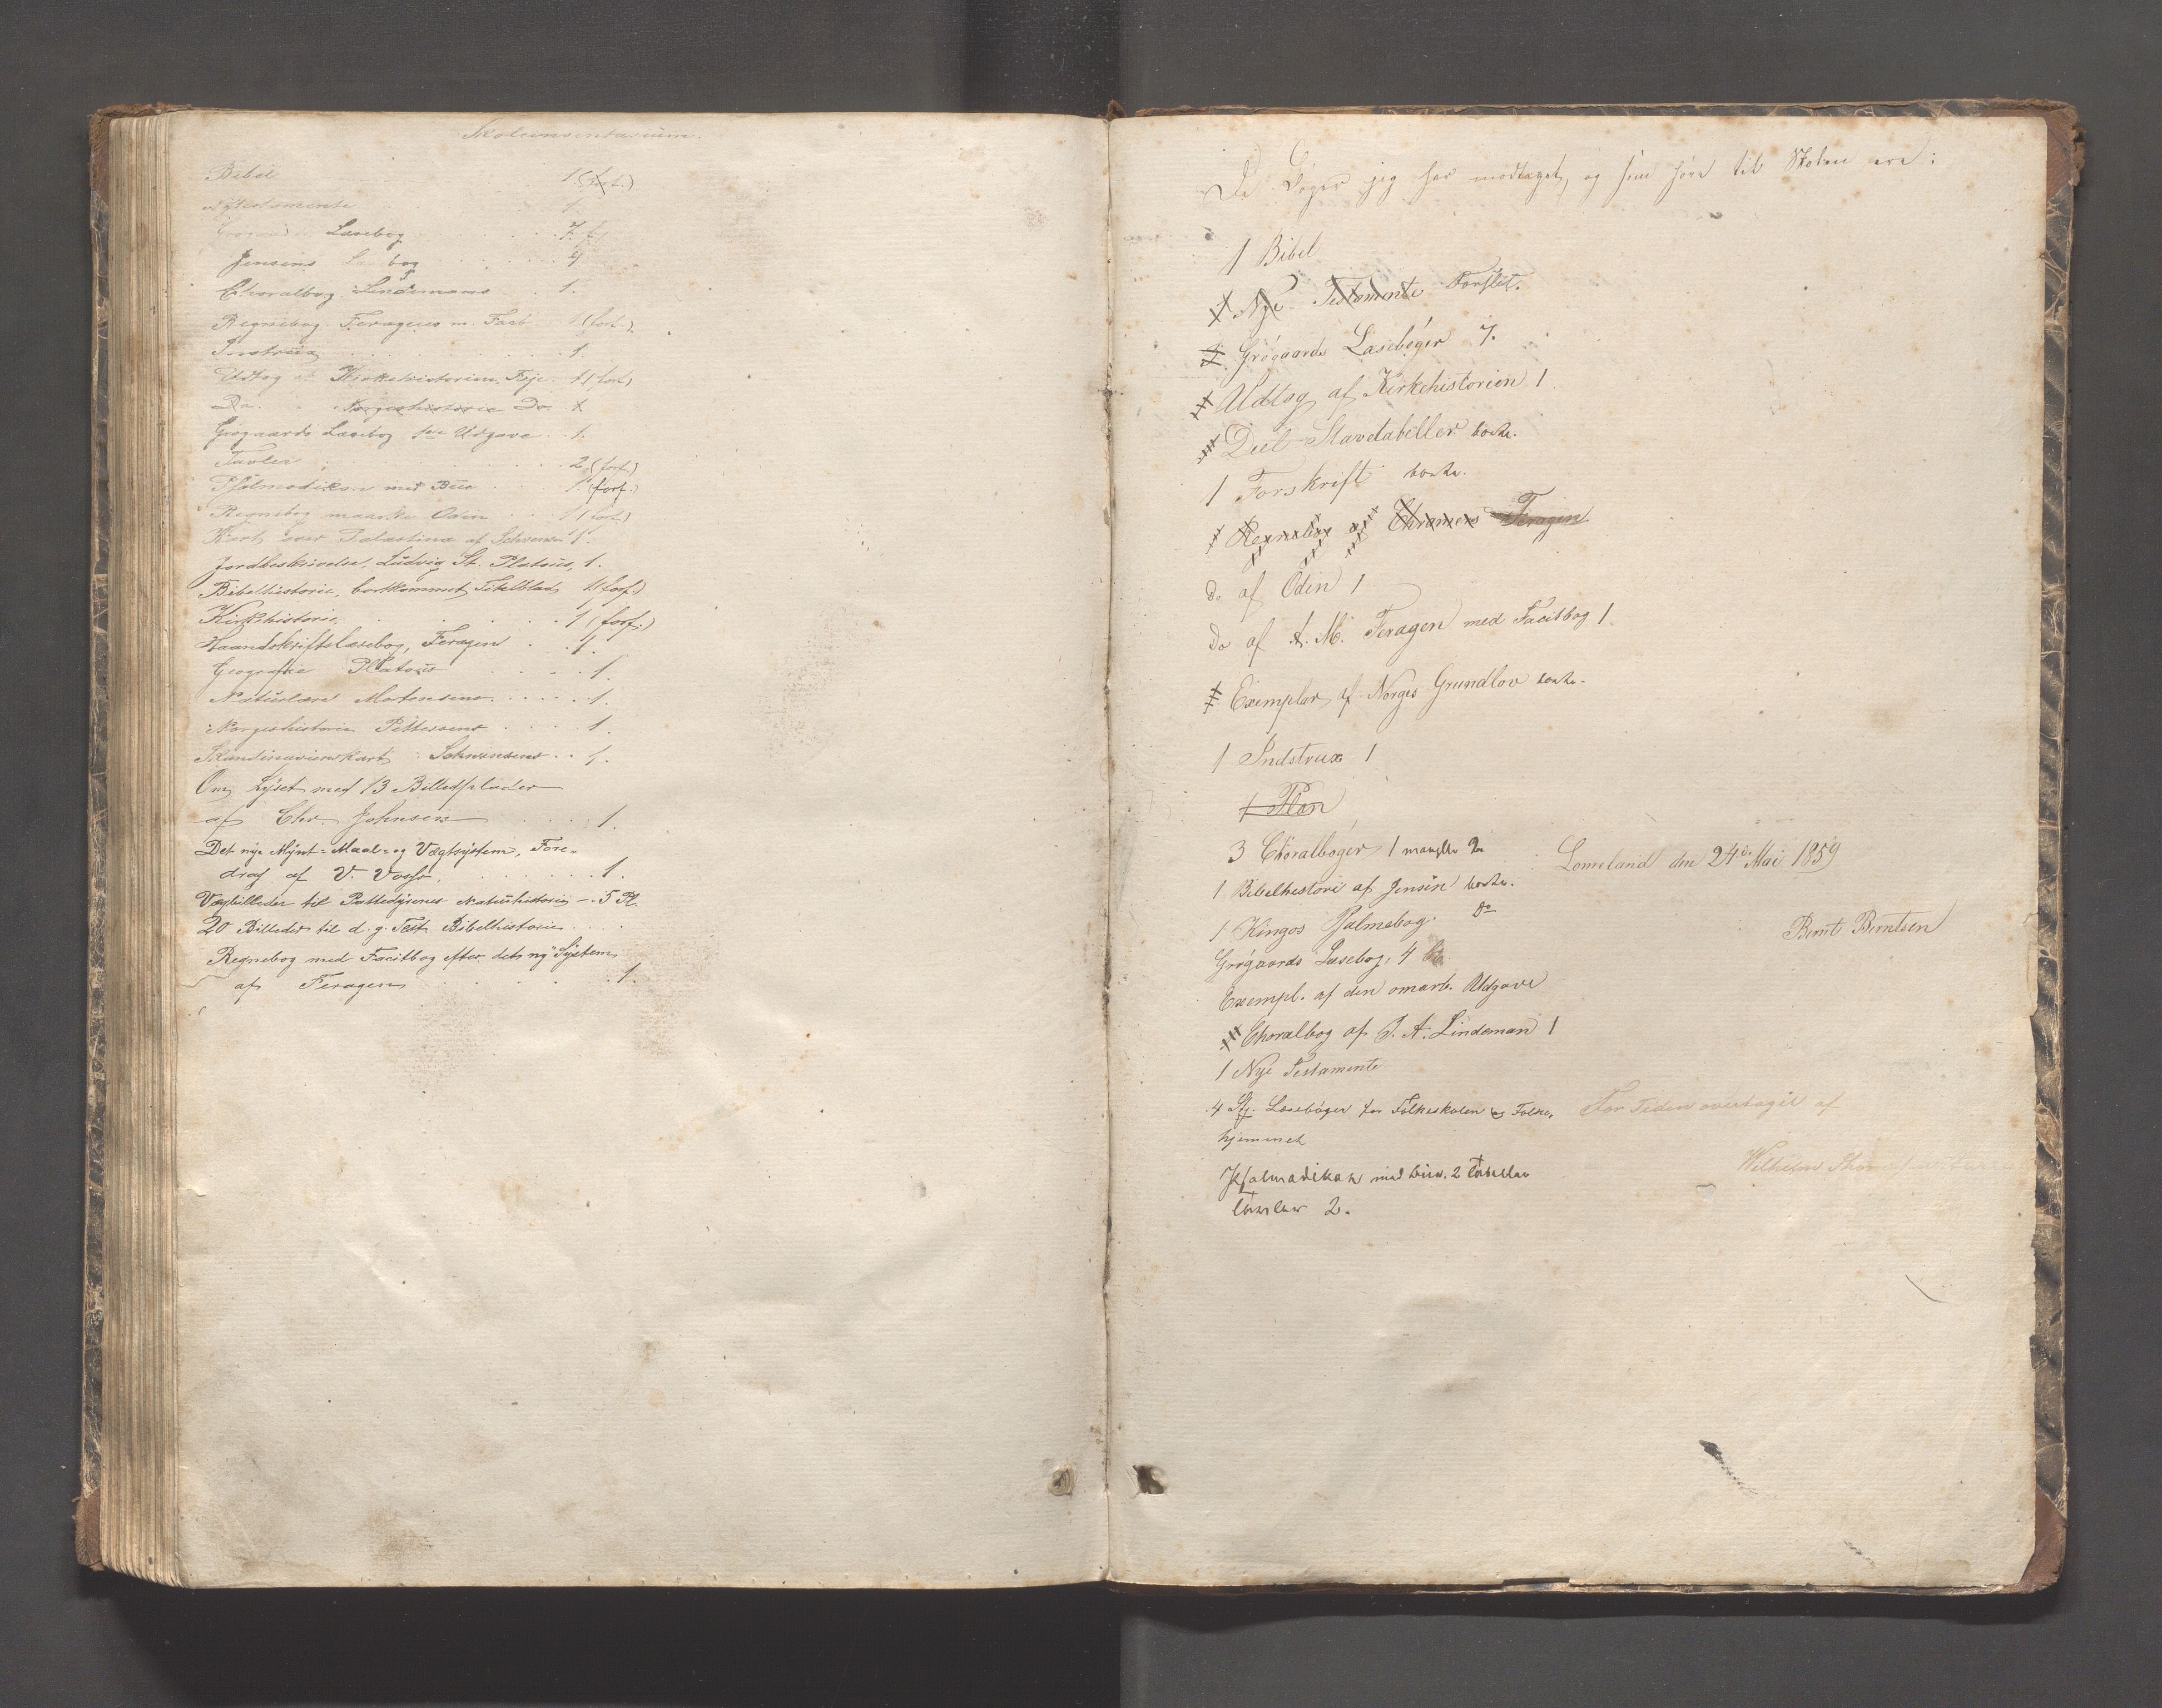 Skoleinventarium.
Bibel 1 (forf.)
Nytestamente 1
Læsebog 7. f
Jensens bog 4
Choralbog Lindemans 1.
Regnebog Feragens m. Facit 1 (forf.)
Instrux 1.
Udtog af Kirkehistorien. Feje. 1 (forf.)
Do. Norgeshistorie Do. 1
Grøgaards Læsebog Udgave 1.
Tavler 2 (forf.)
Psalmodikon med Bue 1. (forf.)
Regnebog maaske Odin 1 (forf.)
Kart over Palæstina af 1.
Jordbeskrivelse, Ludvig St. Platous, 1.
Bibelhistorie, bortkommet Titelblad 1 (forf.)
Kirkhistorie 1 (forf.)
Haandskriftslæsebog, Feragen 1.
Geografie Platous 1.
Naturlære Mortensens 1.
Norgeshistorie Pettersens 1.
Skandinavienkart 1.
Om Lyset med 13 Billedplader
af Chr. Johnsen 1.
Det nye Mynt- Maal- og Vægtsystem, Fore-
drag af V. Voss 1.
Vægbilleder til Pattedyrenes Naturhistorie - 5 Pl.
20 Billeder til d. g. Test. Bibelhistorie
Regnebog med Facitbog efter det ny System
af Feragen 1.
De Bøger jeg har modtaget, og som høre til Skolen ere:
1 Bibel
1 Nye Testamente Forslidt.
2. Grøgaards Læsebøger 7.
Udtog af Kirkehistorien 1
Deel Stavetabeller borte.
1 Forskrift borte.
1 Regnebog af Feragen
do af Odin 1
do af A. M. Feragen med Facitbog 1.
Exemplar af Norges Grundlov borte.
1 Indstrux 1
1 Plan
3 Choralbøger 1 mangler 2
1 Bibelhistori af Jensen borte.
1 Kingos Psalmebog. Do
Grøgaards Læsebog, 4
Exempl. af den omarb. Udgave
Choralbog af J. A. Lindeman 1
1 Nye Testamente
4 Læsebøger for Folkeskolen og Folke-
hjemmet
Psalmodikon med bue. 2
2.
Lomeland den 24de Mai 1859
Bernt Berntsen
For Tiden overtaget af
Wilhelm